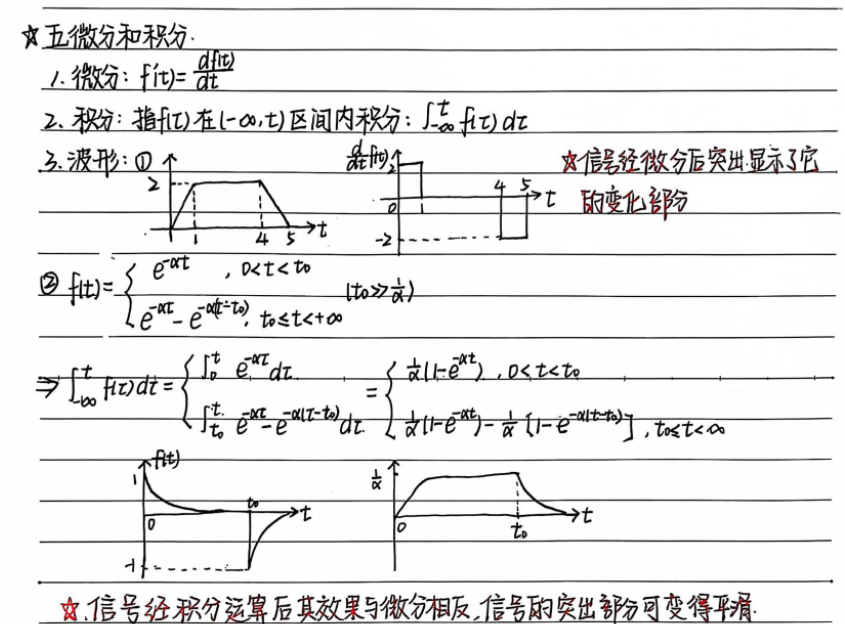 ☆五微分和积分.
1. 微分: f'(t)=df(t)/dt
2. 积分: 指f(t)在(-∞,t)区间内积分: ∫_{-∞}^{t} f(τ)dτ
3. 波形: ①
2
1 4 5 t
d/dt f(t)
2
0 1 4 5 t
-2
☆信号经微分后突出显示了它
的变化部分
② f(t)={ e^{-αt} , 0<t<t₀
e^{-αt}-e^{-α(t-t₀)}, t₀≤t<+∞
(t₀≫1/α)
⇒ ∫_{-∞}^{t} f(τ)dτ={ ∫_{0}^{t} e^{-ατ}dτ = { 1/α(1-e^{-αt}) , 0<t<t₀
∫_{t₀}^{t} e^{-ατ}-e^{-α(τ-t₀)}dτ 1/α(1-e^{-αt})-1/α[1-e^{-α(t-t₀)}], t₀≤t<∞
f(t)
1
0 t₀ t
-1
1/α
0 t₀ t
☆.信号经积分运算后其效果与微分相反,信号的突出部分可变得平滑.